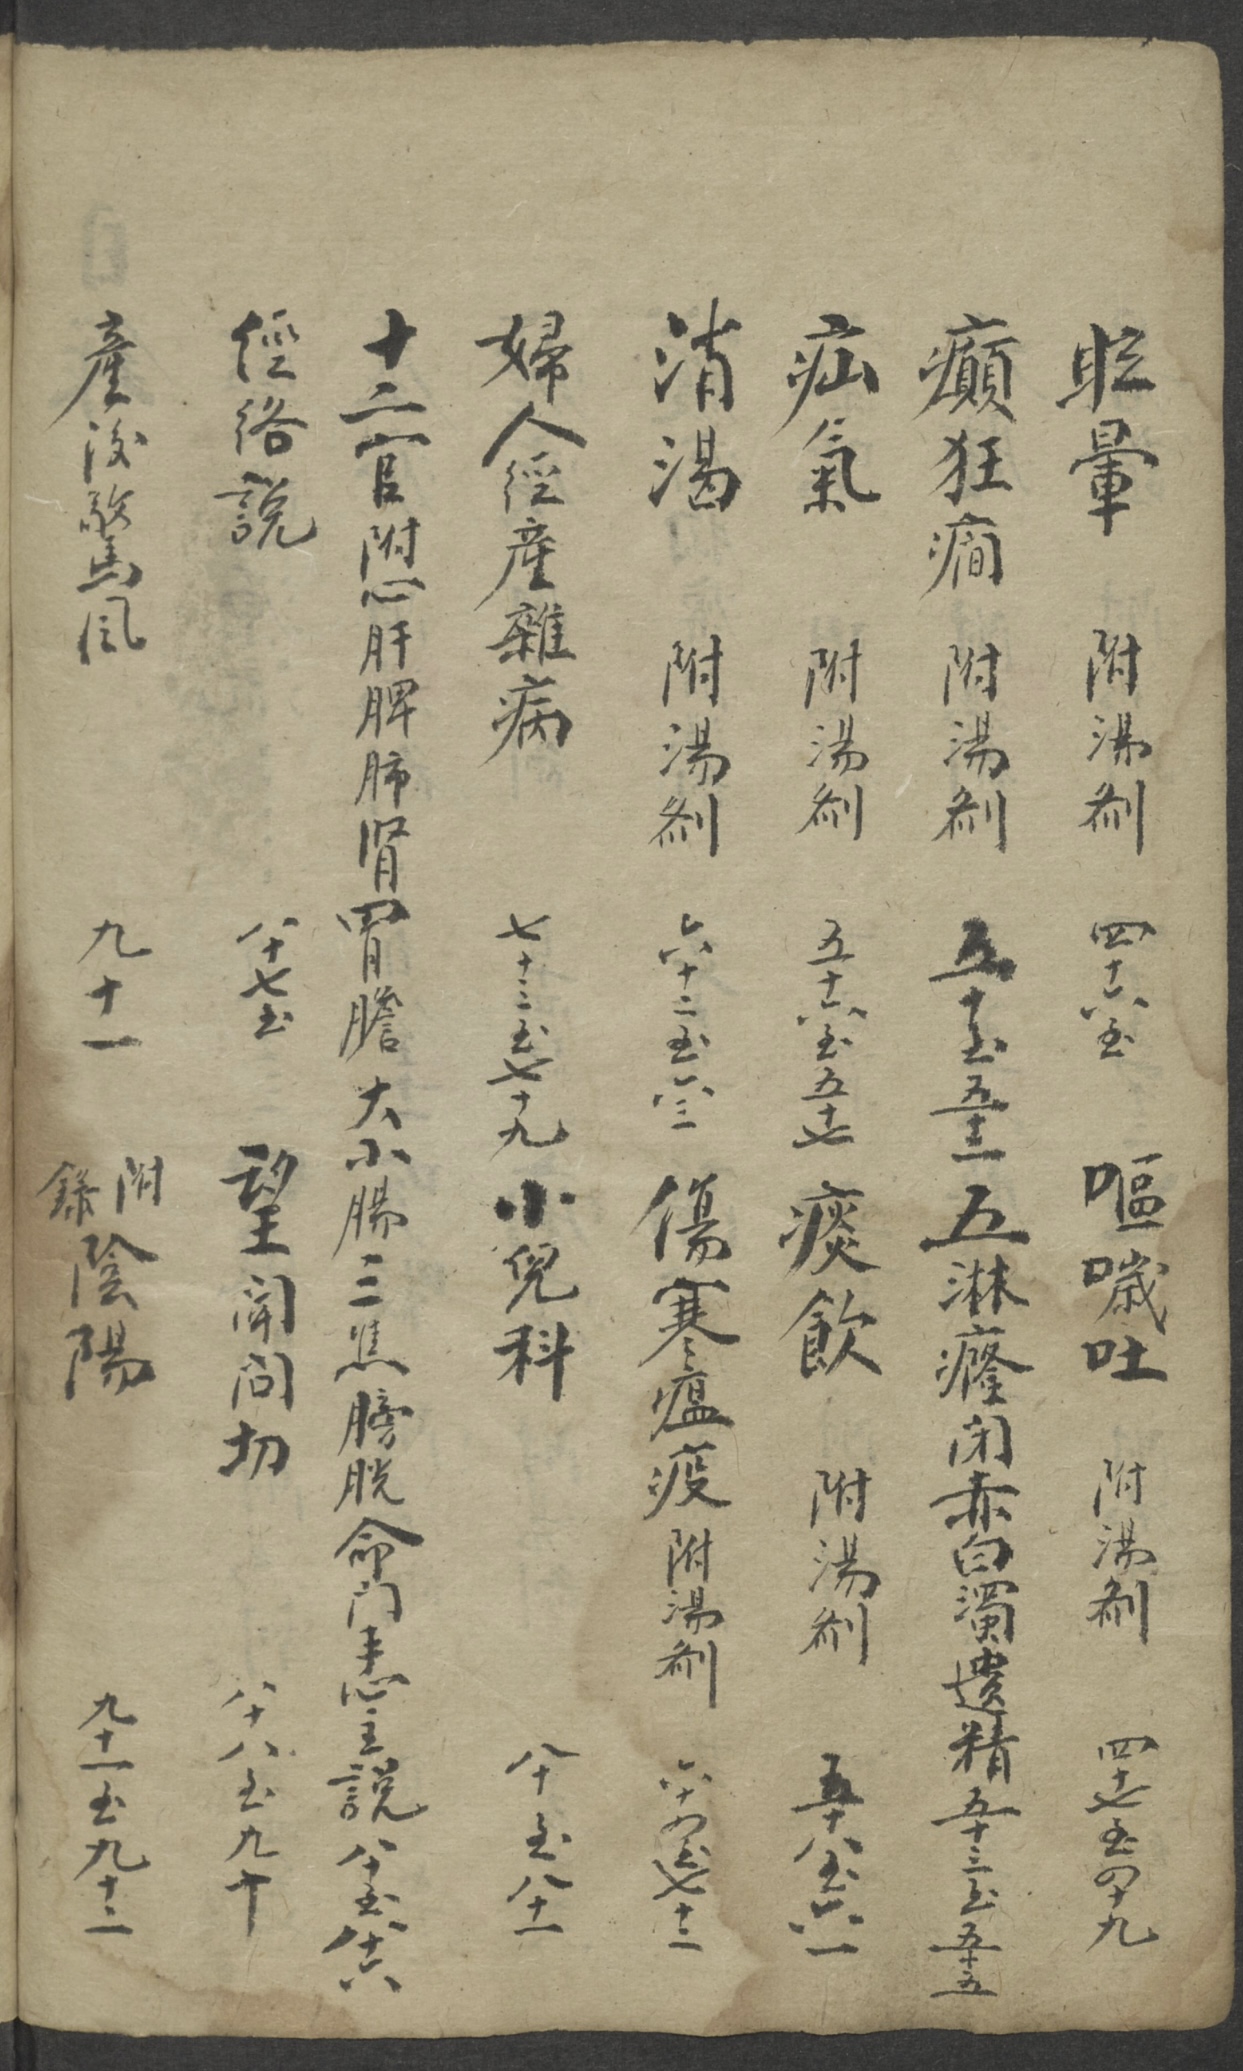 眩暈 附湯劑 四十六至 嘔噦吐 附湯劑 四十七至四十九
癲狂癇 附湯劑 五十至五十二 五淋癃閉赤白濁遺精 五十三至五十五
疝氣 附湯劑 五十六至五十七 痰飲 附湯劑 五十八至六一
消渴 附湯劑 六十二至六三 傷寒瘟疫 附湯劑 六十四至七十二
婦人經產雜病 七十三至七十九 小兒科 八十至八十一
十二官附心肝脾肺腎胃膽大小腸三焦膀胱命門主說 八十至八十六
經絡說 八十七至 望聞問切 八十八至九十
產後驚風 九十一 附錄陰陽 九十一至九十二